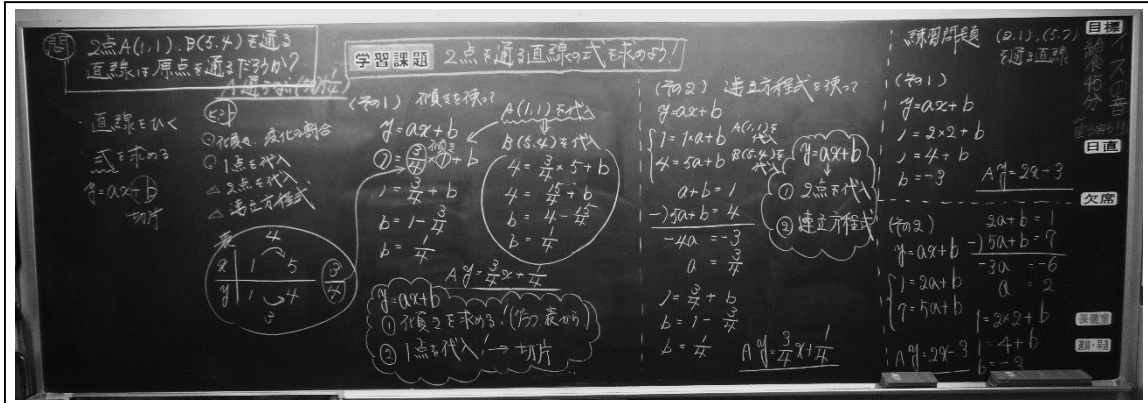 問
2点A(1,1)、B(5,4)を通る
直線は原点を通るだろうか?
A 通らない(切片1/4)
・直線をひく
・式を求める
y=ax+b
切片
ヒント
○傾き、変化の割合
○1点を代入
△2点を代入
△連立方程式
表
4
x 1 5
y 1 4
3
3/4
学習課題 2点を通る直線の式を求めよう!
(その1) 傾きを使って
y=ax+b
傾き
1=3/4×1+b
1=3/4+b
b=1-3/4
b=1/4
A(1,1)を代入
B(5,4)を代入
4=3/4×5+b
4=15/4+b
b=4-15/4
b=1/4
A y=3/4x+1/4
y=ax+b
①傾きを求める!(グラフ、表から)
②1点を代入!→切片
(その2) 連立方程式を使って
y=ax+b
1=1×a+b A(1,1)を代入
4=5a+b B(5,4)を代入
a+b=1
-)5a+b=4
-4a =-3
a =3/4
1=3/4+b
b=1-3/4
b=1/4
A y=3/4x+1/4
y=ax+b
①2点を代入
②連立方程式
練習問題 (2,1)、(5,7)
を通る直線
(その1)
y=ax+b
1=2×2+b
1=4+b
b=-3
A y=2x-3
(その2)
y=ax+b
1=2a+b
7=5a+b
2a+b=1
-)5a+b=7
-3a =-6
a =2
1=2×2+b
1=4+b
b=-3
A y=2x-3
目標
イスの音
45分
日直
欠席
保健室
遅刻・早退